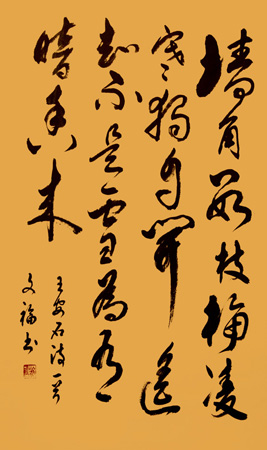 墙角数枝梅凌
寒独自開遥
知不是雪為有
暗香来
王安石诗一首
文福书